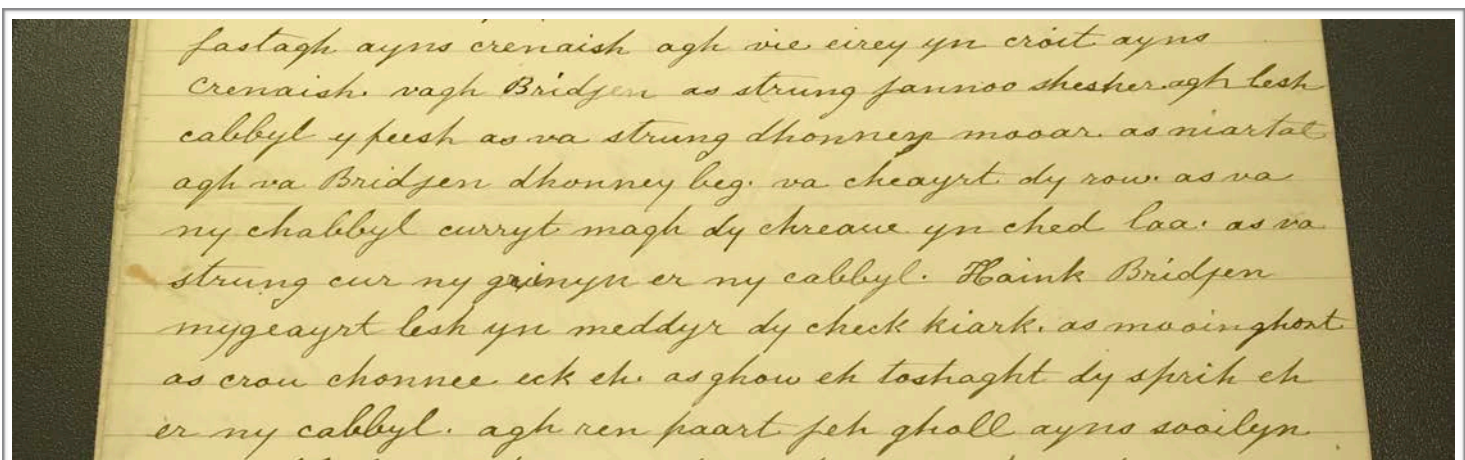 fastagh ayns crenaish agh vie eirey yn croit ayns
crenaish. vagh Bridjen as strung jannoo shesher. agh lesh
cabbyl y feesh as va strung dhonney mooar. as niartal
agh va Bridjen dhonney beg. va cheayrt dy row. as va
ny chabbyl curryt magh dy chreaue yn ched laa. as va
strung cur ny grinyn er ny cabbyl. Haink Bridjen
mygeayrt lesh yn meddyr dy check kiark. as mooin ghoat
as crou chonnee eck eh. as ghow eh toshaght dy sprih eh
er ny cabbyl. agh ren paart jeh gholl ayns sooilyn